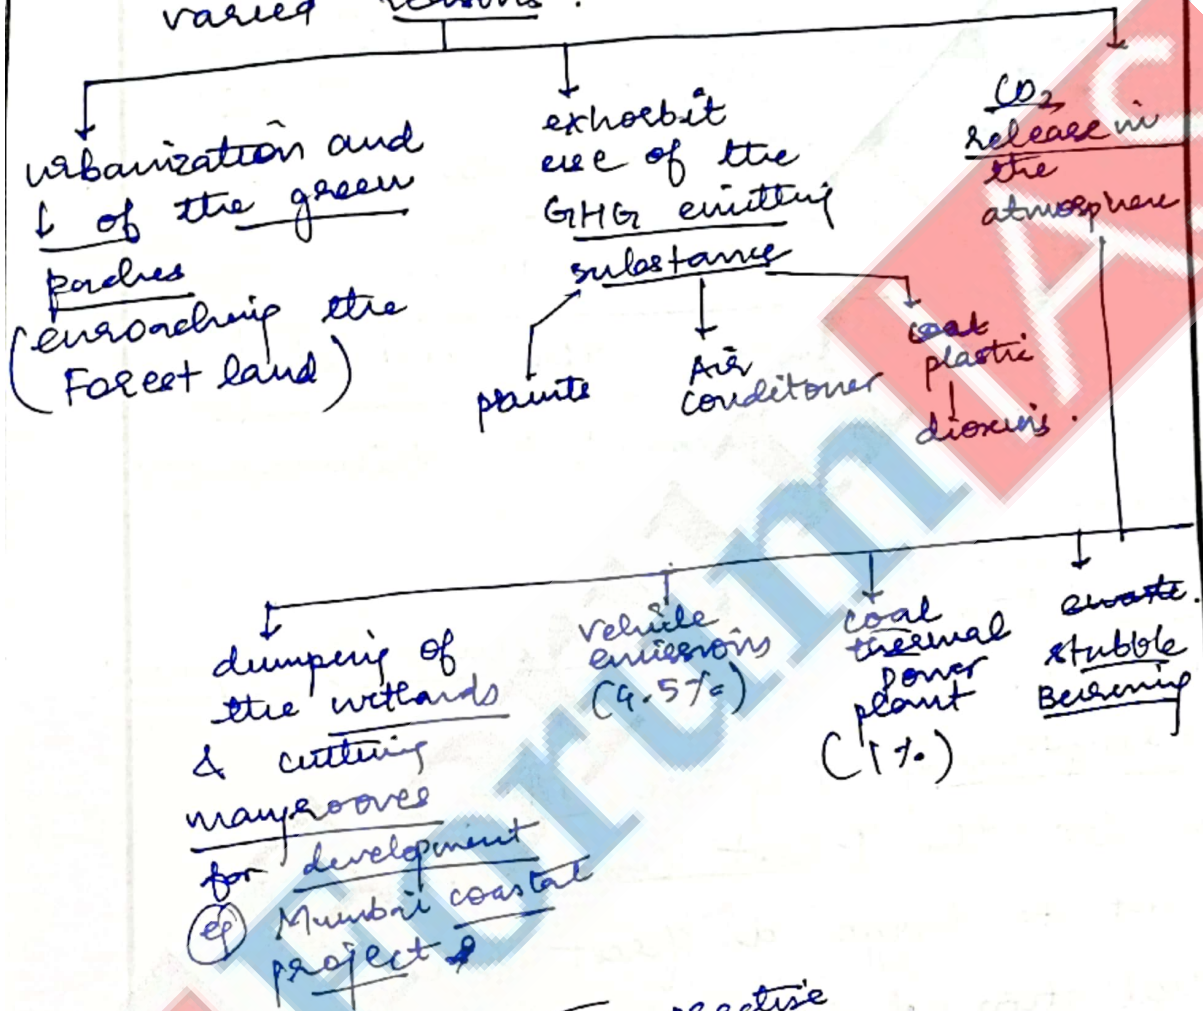 varied reasons.
urbanization and
↓ of the green
paches
(enroaching the
Forest land)
exhorbit
use of the
GHG emitting
substance
paints
Air
conditoner
coat
plastic
dioxins.
CO2
release in
the
atmosphere
dumping of
the wetlands
& cutting
mangrooves
for development
eg Mumbai coastal
project
vehicle
emissions
(4.5%)
coal
thermal
power
plant
(1%)
ewaste.
stubble
Burning
Forum IAS